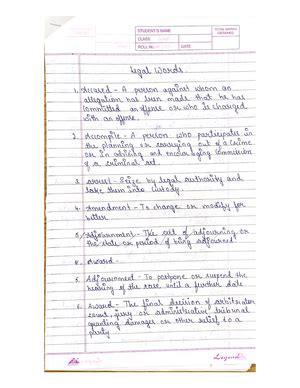 STUDENT'S NAME
CLASS
ROLL No.
DATE
TOTAL MARKS
OBTAINED
Legal Words
1. Accused - A person against whom an
allegation has been made that he has
committed an offense or who is charged
with an offense.
2. Accomplie - A person who participates in
the planning or carrying out of a crime
or in advising and encouraging commission
of a criminal act.
3. arrest - Seize by legal authority and
take them into custody.
4. Amendment - To change or modify for
better
5. Adjournment - The act of adjourning or
the state or period of being adjourned
6. Award -
5. Adjournment - To postpone or suspend the
hearing of the case until a further date
6. Award - The final decision of arbitrator
court, jury or administrative tribunal
granting damages or other relief to a
party.
Legend